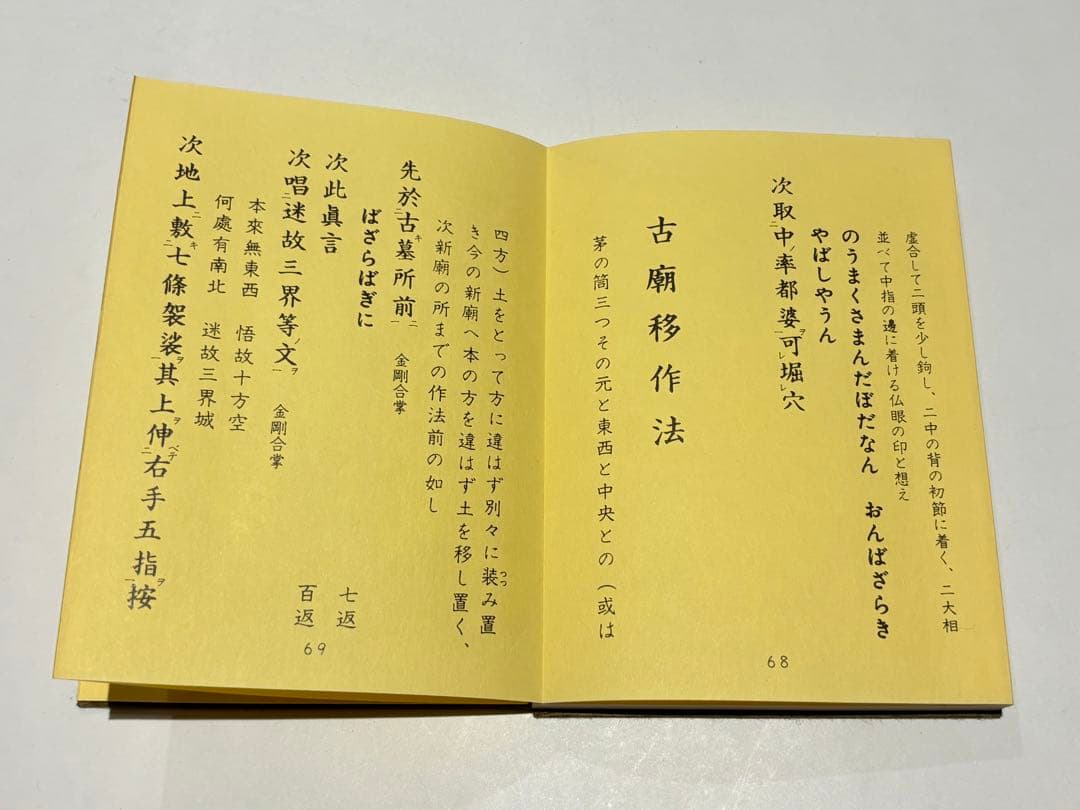 虚合して二頭を少し鉤し、二中の背の初節に着く、二大相
並べて中指の邊に着ける仏眼の印と想え
のうまくさまんだぼだなん　おんばざらき
やばしやうん
次取二中ノ率都婆一ヲ可レ堀レ穴
古廟移作法
茅の筒三つその元と東西と中央との（或は
68
四方）土をとって方に違はず別々に装つつみ置
き今の新廟へ本の方を違はず土を移し置く、
次新廟の所までの作法前の如し
先於二古キ墓所前一ニ　金剛合掌
ばざらばぎに
次此眞言　七返
次唱二迷故三界等ノ文一ヲ　金剛合掌　百返
本來無東西　悟故十方空
何處有南北　迷故三界城
次地上ニ敷キ二七條袈裟一ヲ其上ヲ伸ベテ二右手五指一ヲ按
69